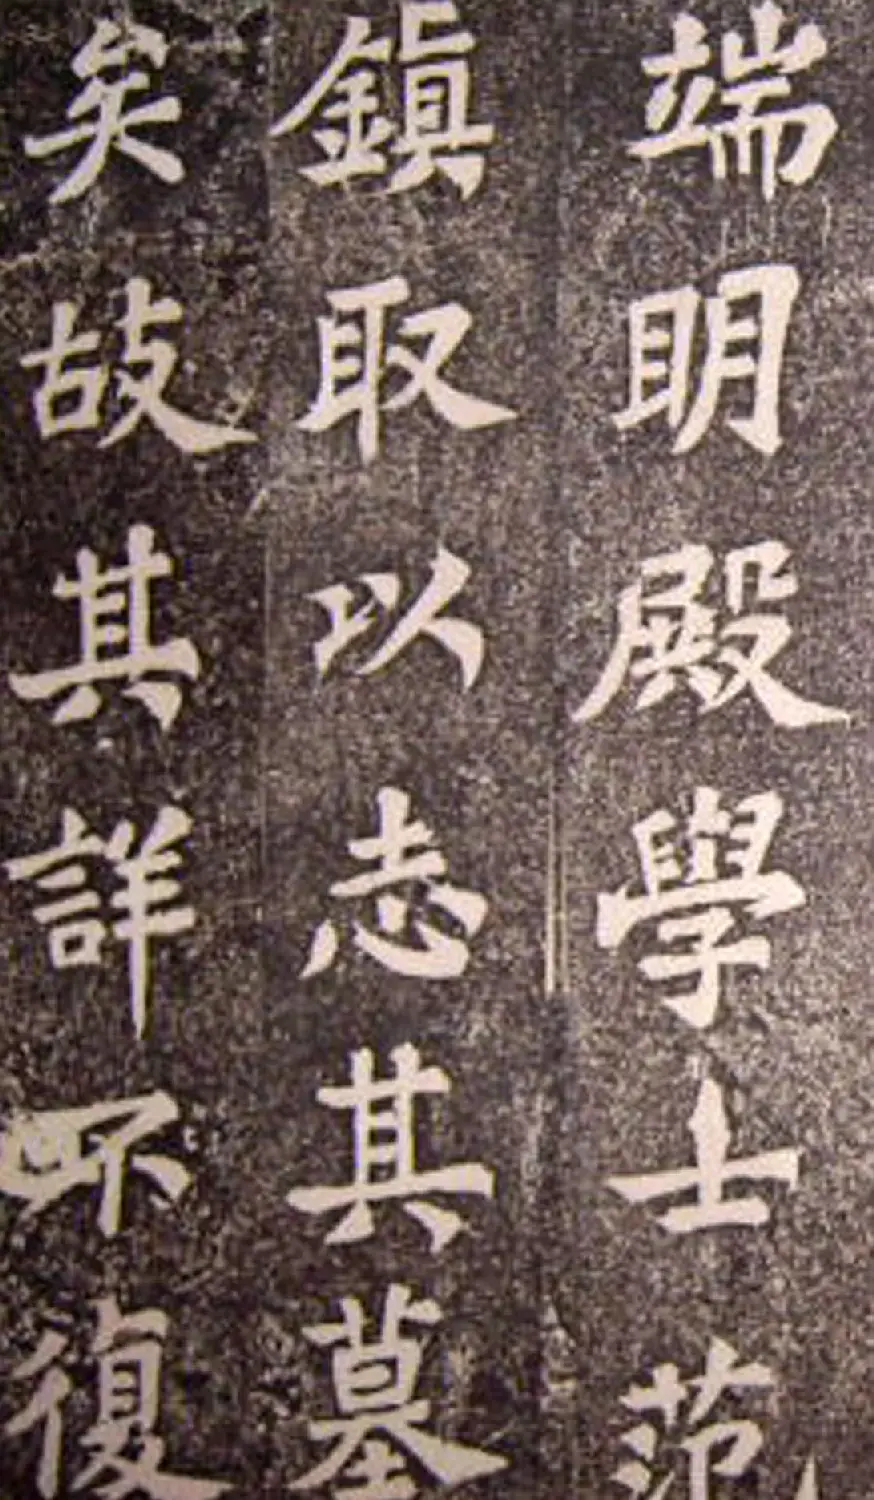 端明殿學士范
鎮取以志其墓
矣故其詳不復